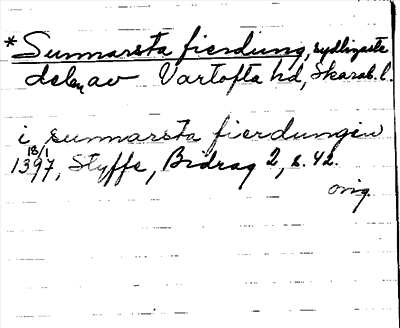 *Sunnarsta fierdung, sydligaste
delen av Vartofta hd, Skarab. l.
i sunnarsta fierdungin
18/1
1397, Styffe, Bidrag 2, s. 42.
orig.